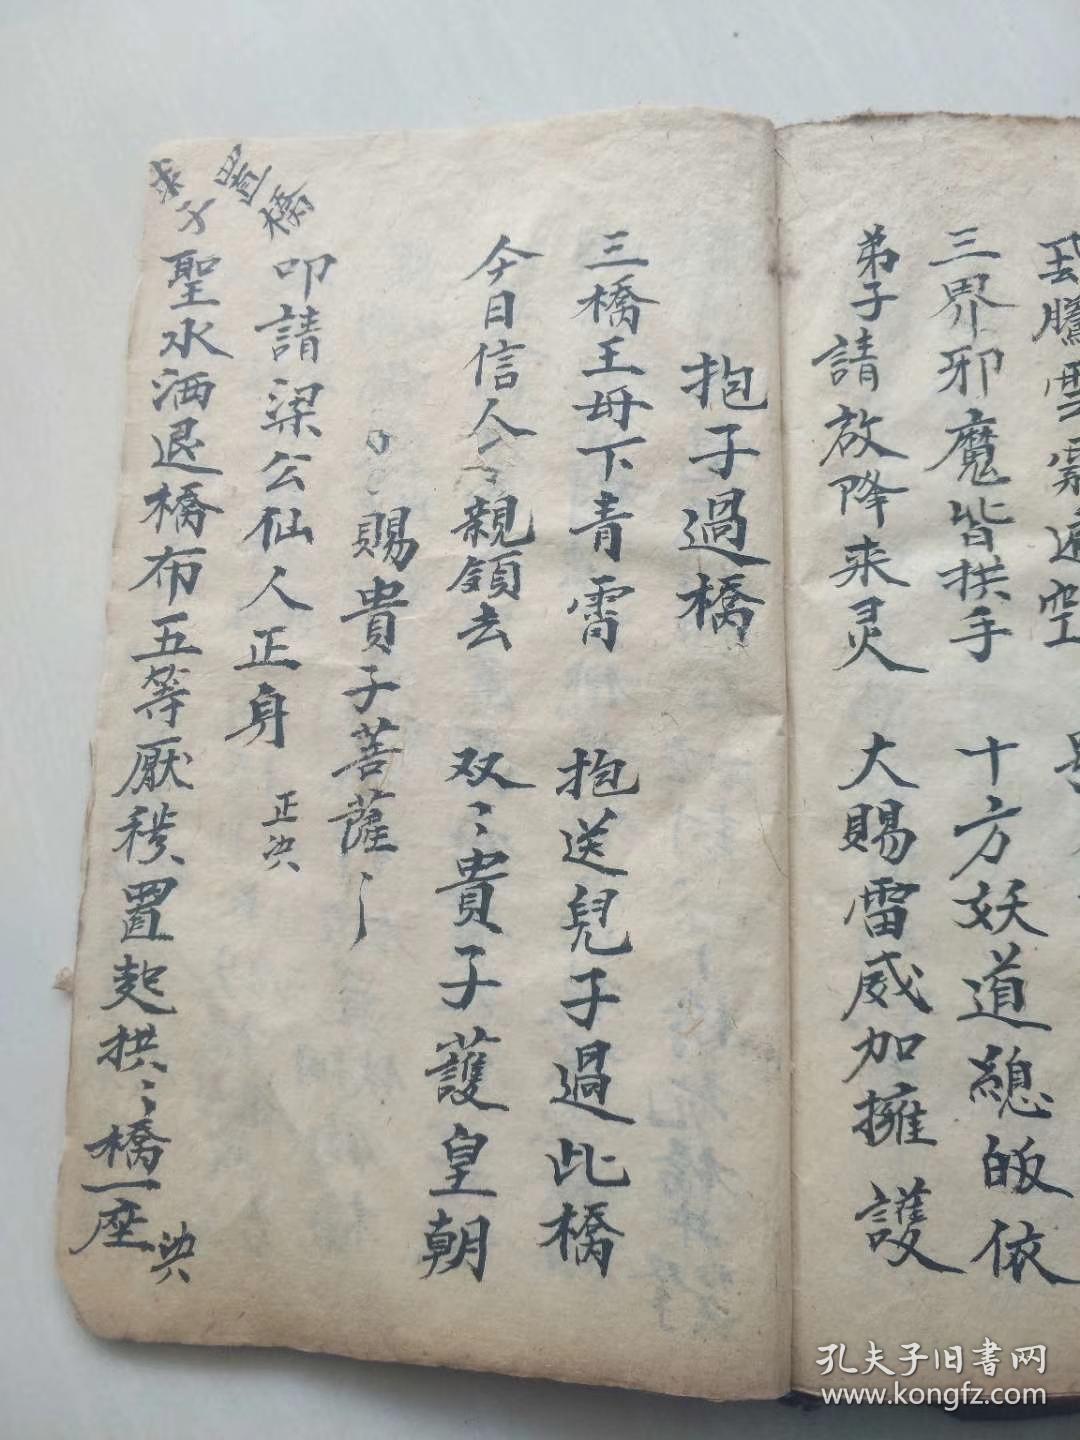 騰雲霧遍空
三界邪魔皆拱手　十方妖道總皈依
弟子請啟降来灵　大賜雷威加擁護
抱子過橋
三橋王母下青霄　抱送兒子過此橋
今日信人親領去　双〻貴子護皇朝
賜貴子菩薩
叩請梁公仙人正身　正决
聖水洒退橋布五等厭穢置起拱〻橋一座　决
置橋
求子
孔夫子旧書网
www.kongfz.com